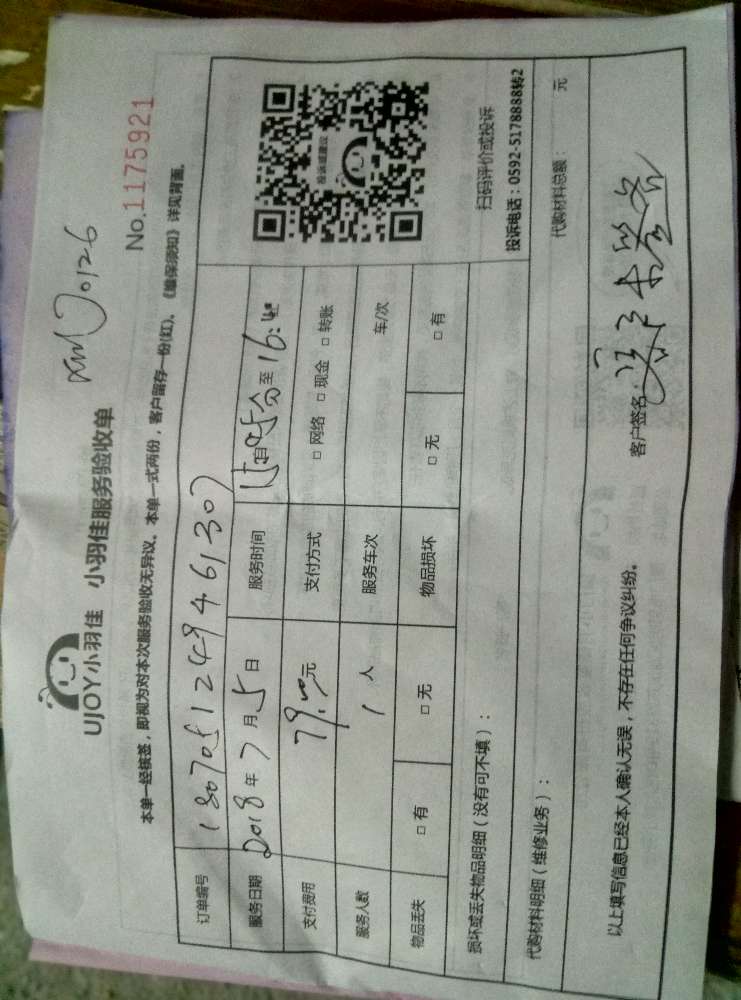 UJOY小羽佳 小羽佳服务验收单
No.1175921
本单一经核签，即视为对本次服务验收无异议。本单一式两份，客户留存一份(红)。《维保须知》详见背面。
订单编号
服务日期 2018年7月5日 服务时间 至16:
支付费用 79.00元 支付方式 □ 网络 □ 现金 □ 转账
服务人数 1人 服务车次 车/次
物品丢失 □ 有 □ 无 物品损坏 □ 无 □ 有
投诉或建议
扫码评价或投诉
投诉电话：0592-5178888转2
损坏或丢失物品明细（没有可不填）：
代购材料明细（维修业务）： 代购材料总额： 元
以上填写信息已经本人确认无误，不存在任何争议纠纷。 客户签名：